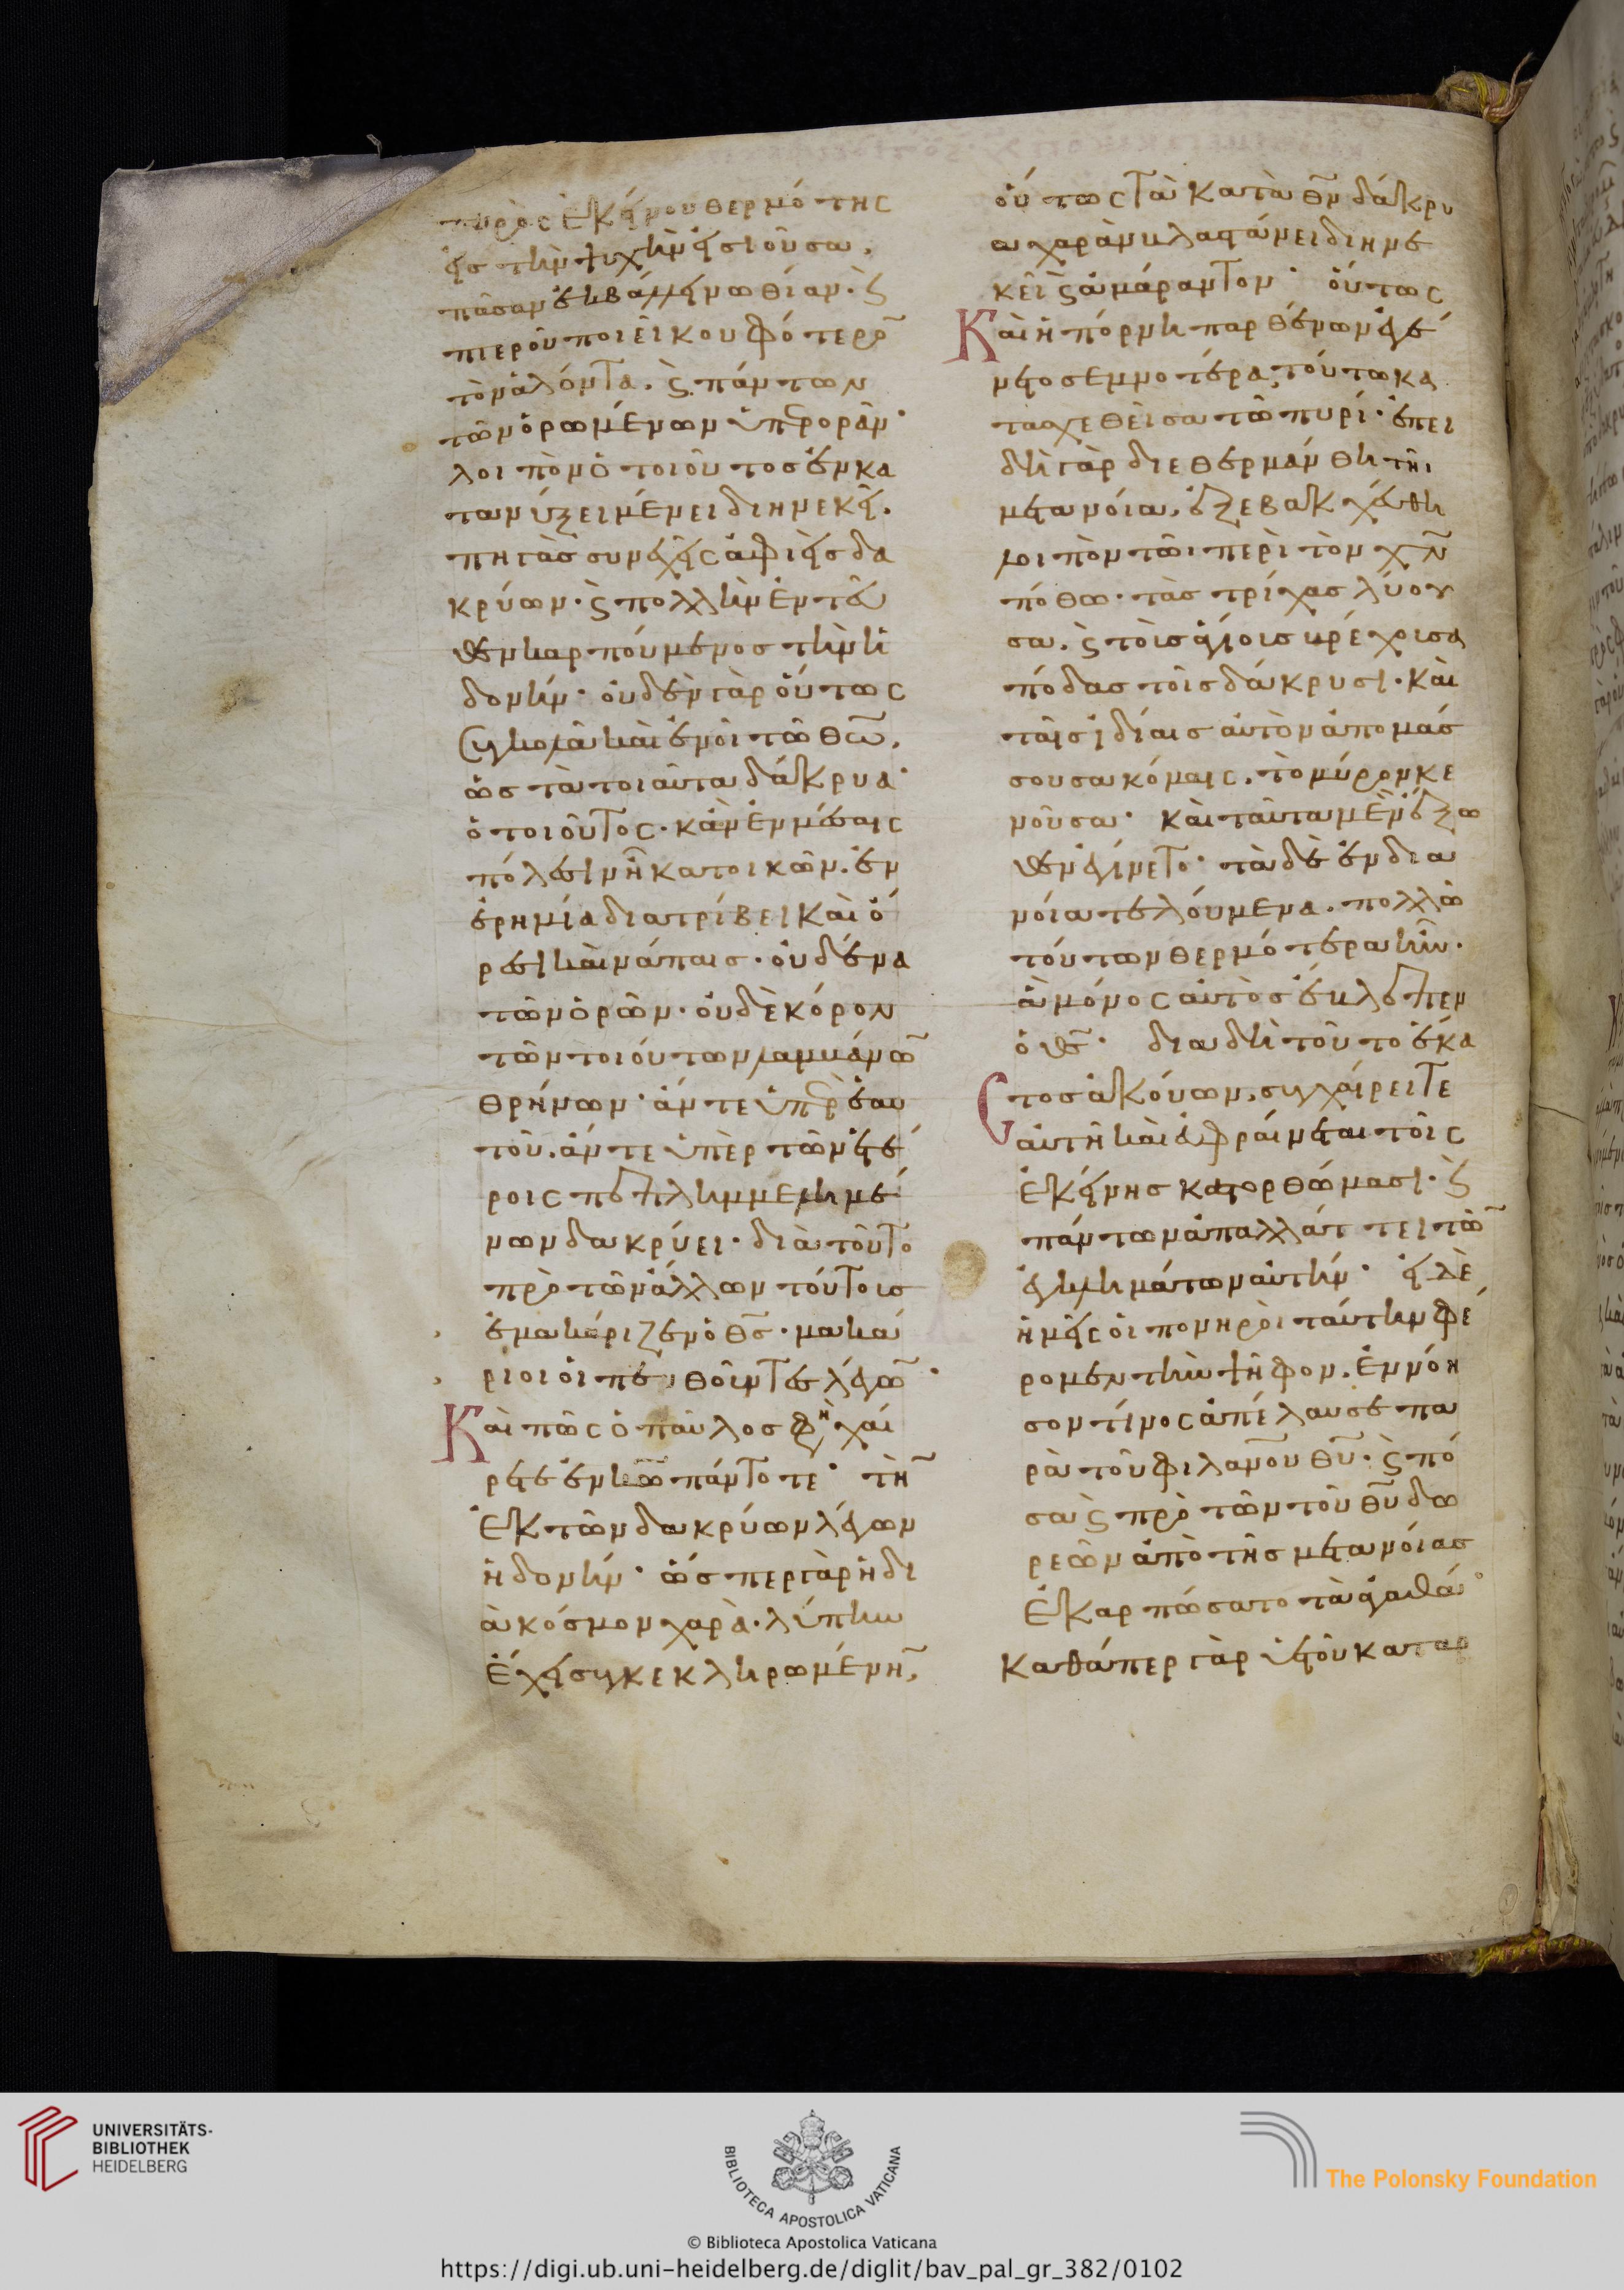 πυρὸς ἐκείνου θερμότης
εἰς τὴν ψυχὴν εἰσιοῦσα,
πᾶσαν ἐκβάλλει νωθίαν· ϛ
πτεροῦ ποιεῖ κουφότερο͂
τὸν ἁλόντα. ϛ πάντων
τῶν ὁρωμένων ὑπερορᾶν·
λοιπὸν ὁ τοιοῦτος ἐν κα
τανύξει μένει διηνεκεῖ.
πηγὰς συνεχεῖς ἀφιεὶς δα
κρύων· ϛ πολλὴν ἐντεῦ
θεν καρπούμενος τὴν ἡ
δονήν· οὐδὲν γὰρ οὕτως
συγκολλᾶ καὶ ἑνοῖ τῶ θω̅,
ὡς τὰ τοιαῦτα δάκρυα·
ὁ τοιοῦτος. κἂν ἐν μέσαις
πόλεσιν ῆ κατοικῶν. ἐν
ἐρημία διατρίβει καὶ ὄ
ρεσι καὶ νάπαις· οὐδένα
τῶν ὁρῶν· οὐδὲ κόρον
τῶν τοιούτων λαμβάνῶ
θρήνων· ἄν τε ὑπὲρ ἑαυ
τοῦ. ἄν τε ὑπὲρ τῶν ἑτέ
ροις πεπλημμελημέ
νων δακρύει· διὰ τοῦτο
πρὸ τῶν ἄλλων τούτους
ἐμακάριζεν ὁ θς̅· μακά
ριοι οἱ πενθοῦντες λέγῶ·
Καὶ πῶς ὁ παῦλος φη χαί
ρετε ἐν κω̅ πάντοτε· τὴ͂
ἐκ τῶν δακρύων λέγων
ἡδονήν· ὥσπερ γὰρ ἡ δι
ὰ κόσμον χαρὰ. λύπην
ἔχει συγκεκληρωμένῆ,
οὕτως τὰ κατὰ θν̅ δάκρυ
α χαρὰν βλαστάνει διηνε
κεῖ ϛ ἀμάραντον· οὕτως
Καὶ ἡ πόρνη παρθένων ἐγέ
νετο σεμνοτέρα, τούτω κα
τασχεθεῖσα τῶ πυρί· ἐπει
δὴ γὰρ διεθερμάνθη τῆι
μετανοία, ἐξεβακχεύθη
λοιπὸν τῶι περὶ τὸν χν̅
πόθω· τὰς τρίχας λύου
σα. ϛ τοὺς ἁγίους βρέχουσα
πόδας τοῖς δάκρυσι· καὶ
ταῖς ἰδίαις αὐτὸν ἀπομάσ
σουσα κόμαις. τὸ μύρον κε
νοῦσα· καὶ ταῦτα μὲν ἔξω
θεν ἐγίνετο· τὰ δὲ ἐν δια
νοία τελούμενα. πολλῶ
τούτων θερμότερα ἦν·
ἃ μόνος αὐτὸς ἔβλεπεν
ὁ θς̅· διὰ δὴ τοῦτο ἕκα
στος ἀκούων. συγχαίρει τε
αὐτῆ καὶ εὐφραίνεται τοῖς
ἐκείνης κατορθώμασι· ϛ
πάντων ἀπαλλάττει τῶ͂
ἐγκλημάτων αὐτήν· εἰ δὲ
ἡμεῖς οἱ πονηροὶ ταύτην φέ
ρομεν τὴν ψῆφον. ἐννόη
σον τίνος ἀπέλαυσε πα
ρὰ τοῦ φιλαν̅ου θυ̅· ϛ πό
σα ϛ πρὸ τῶν τοῦ θυ̅ δω
ρεῶν ἀπὸ τῆς μετανοίας
ἐκαρπώσατο τὰ ἀγαθά·
Καθάπερ γὰρ ὑετοῦ καταρ
UNIVERSITÄTS-
BIBLIOTHEK
HEIDELBERG
BIBLIOTECA APOSTOLICA VATICANA
© Biblioteca Apostolica Vaticana
The Polonsky Foundation
https://digi.ub.uni-heidelberg.de/diglit/bav_pal_gr_382/0102